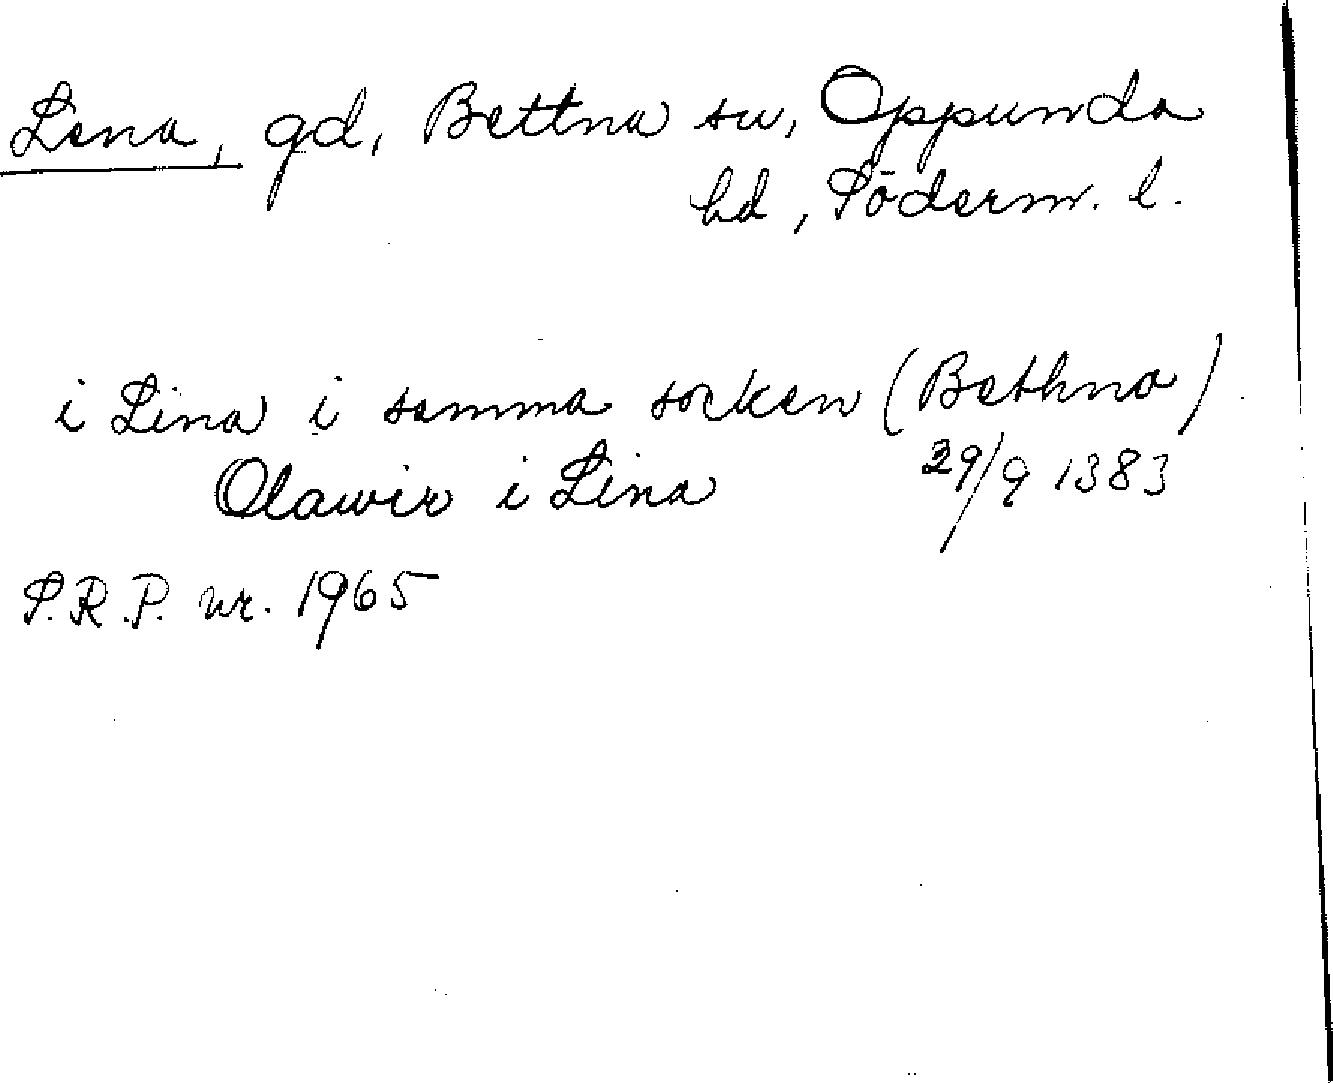 Lena, gd, Bettna sn, Oppunda
hd, Söderm. l.
i Lina i samma socken (Bethna)
Olawir i Lina 29/9 1383
S.R.P. nr. 1965